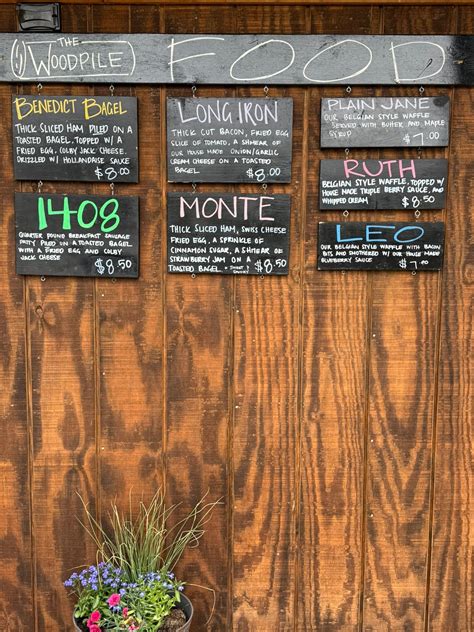 THE
WOODPILE
FOOD
BENEDICT BAGEL
THICK SLICED HAM PILED ON A
TOASTED BAGEL. TOPPED W/ A
FRIED EGG, COLBY JACK CHEESE.
DRIZZLED W/ HOLLANDAISE SAUCE
$8.00
1408
QUARTER POUND BREAKFAST SAUSAGE
PATTY PILED ON A TOASTED BAGEL
WITH A FRIED EGG AND COLBY
JACK CHEESE
$8.50
LONG IRON
THICK CUT BACON, FRIED EGG
SLICE OF TOMATO, A SHMEAR OF
OUR HOUSE MADE ONION/GARLIC
CREAM CHEESE ON A TOASTED
BAGEL
$8.50
MONTE
THICK SLICED HAM, SWISS CHEESE
FRIED EGG, A SPRINKLE OF
CINNAMON SUGAR, A SHMEAR OF
STRAWBERRY JAM ON A
TOASTED BAGEL
$8.50
PLAIN JANE
OUR BELGIAN STYLE WAFFLE
SERVED WITH BUTTER AND MAPLE
SYRUP
$7.00
RUTH
BELGIAN STYLE WAFFLE, TOPPED W/
HOUSE MADE TRIPLE BERRY SAUCE, AND
WHIPPED CREAM
$8.50
LEO
OUR BELGIAN STYLE WAFFLE WITH BACON
BITS AND SMOTHERED W/ OUR HOUSE MADE
BLUEBERRY SAUCE
$7.00